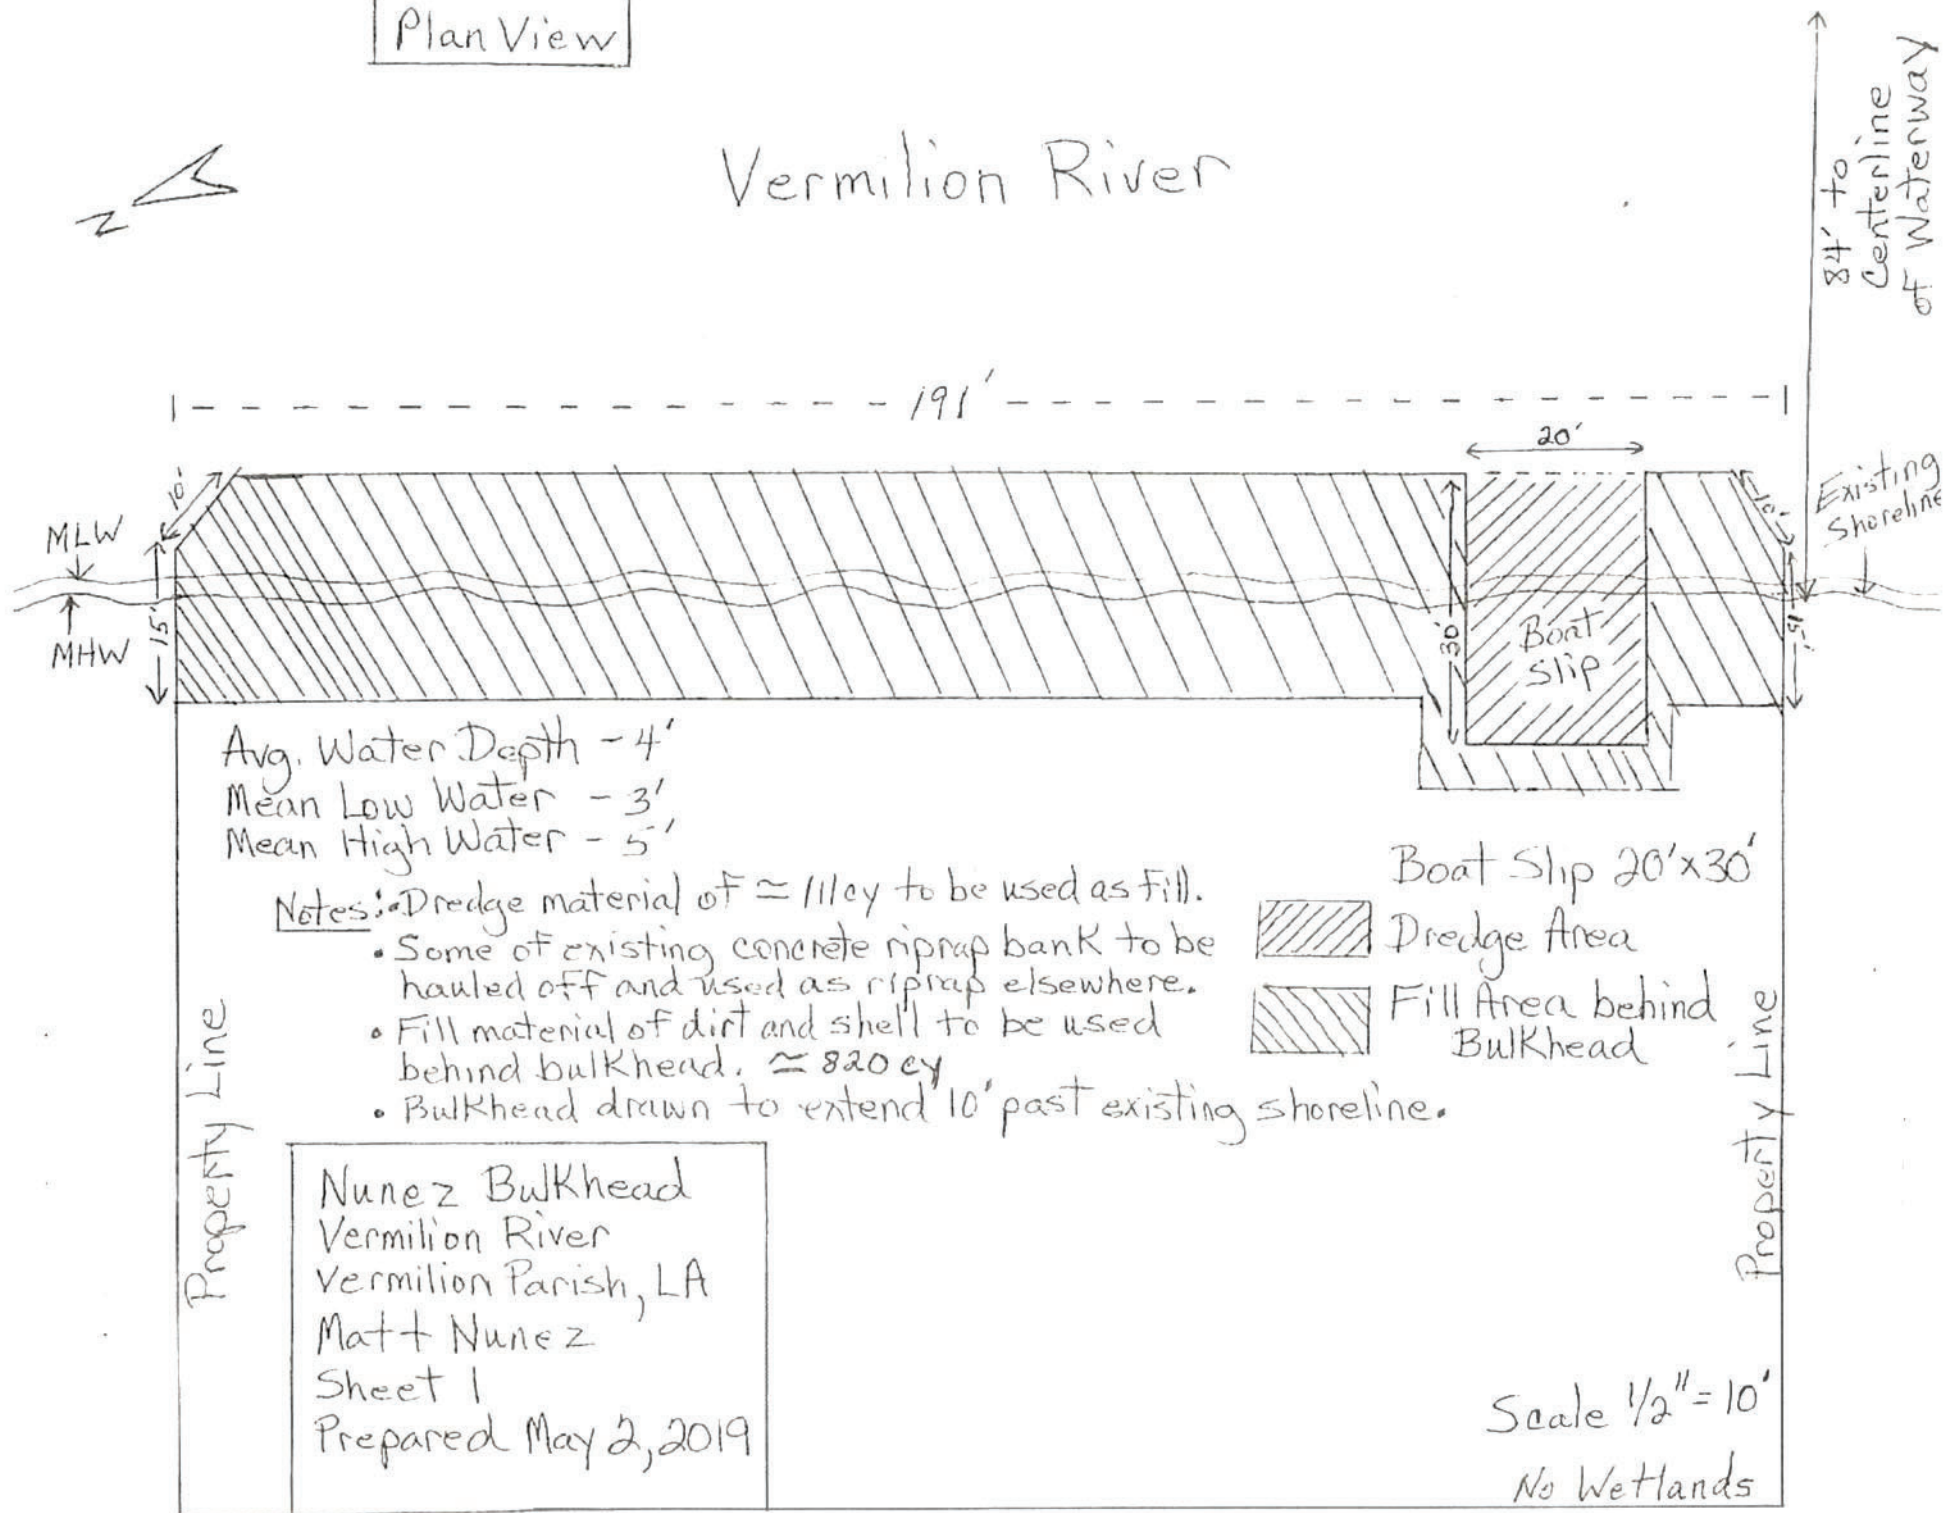 Plan View
Vermilion River
N
84' to
Centerline
of Waterway
191'
20'
10'
10'
Existing
Shoreline
MLW
MHW
15'
30'
Boat
Slip
15'
Avg. Water Depth - 4'
Mean Low Water - 3'
Mean High Water - 5'
Boat Slip 20'x30'
Dredge Area
Fill Area behind
Bulkhead
Notes: • Dredge material of ≃ 111cy to be used as fill.
• Some of existing concrete riprap bank to be
hauled off and used as riprap elsewhere.
• Fill material of dirt and shell to be used
behind bulkhead. ≃ 820 cy
• Bulkhead drawn to extend 10' past existing shoreline.
Property Line
Property Line
Nunez Bulkhead
Vermilion River
Vermilion Parish, LA
Matt Nunez
Sheet 1
Prepared May 2, 2019
Scale 1/2" = 10'
No Wetlands